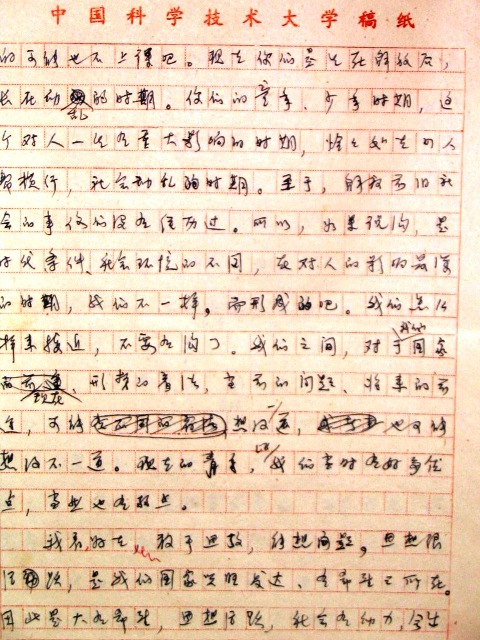 中国科学技术大学稿纸
的可能也不上课吧。现在你们是生在解放后,
长在动乱的时期。你们的童年、少年时期,这
个对人一生有重大影响的时期,恰是处在
横行,社会动乱的时期。至于,解放前旧社
会的事你们没有经历过。所以,如果说沟,是
时代条件、社会环境的不同,在对人的影响最深
的时期,我们不一样,而形成的吧。我们怎么
样来接近,不要有沟了。我们之间,对于我们国家
现在形势的看法,当前的问题、将来的前
途,可能想法一道,也可能
想法不一道。现在的青年,比我们当时有好多优
点,当然也有缺点。
我看,好在敢于思考,能想问题。思想很
活跃,是我们国家兴旺发达、有希望之所在。
因此是大有希望,思想活跃,社会有动力,会生